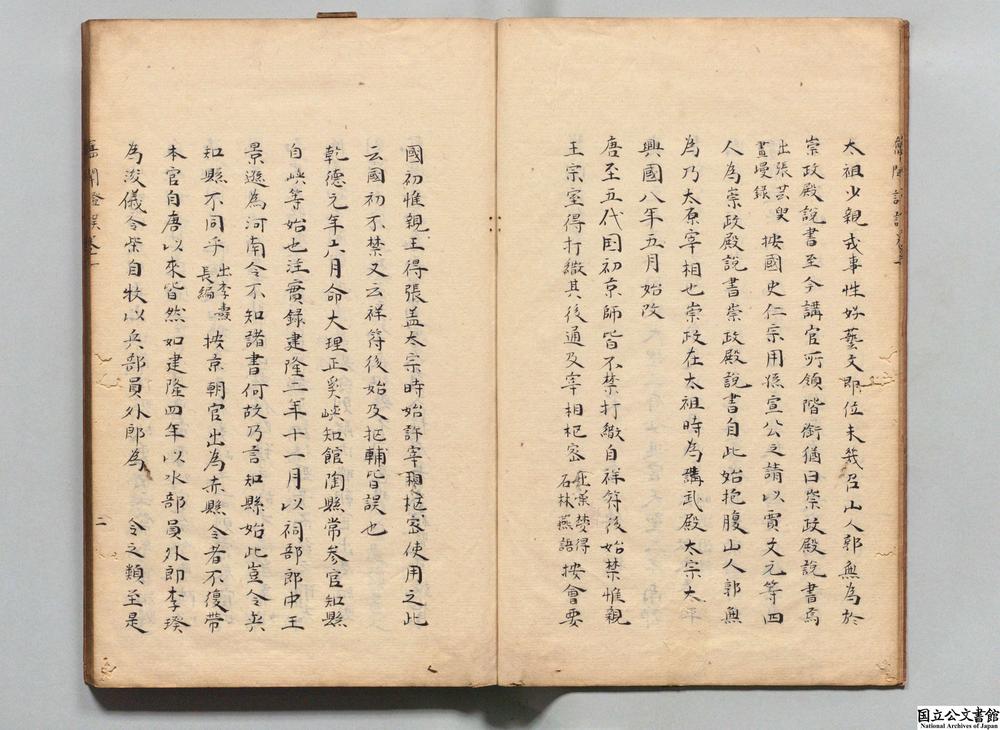 太祖少親戎事性好藝文即位未幾召山人郭無為於
崇政殿說書至今講官所領階銜猶曰崇政殿說書焉
出張芸叟
畫墁錄
按國史仁宗用孫宣公之請以賈文元等四
人為崇政殿說書崇政殿說書自此始抱腹山人郭無
為乃太原宰相也崇政在太祖時為講武殿太宗太平
興國八年五月始改
唐至五代国初京師皆不禁打繖自祥符後始禁惟親
王宗室得打繖其後通及宰相樞密
出葉夢得
石林燕語
按會要
國初惟親王得張盖太宗時始許宰相樞密使用之此
云國初不禁又云祥符後始及樞輔皆誤也
乾德元年六月命大理正奚嶼知館陶縣常參官知縣
自嶼等始也注實錄建隆二年十一月以祠部郎中王
景遜為河南令不知諸書何故乃言知縣始此豈令與
知縣不同乎
出李燾
長編
按京朝官出為赤縣令者不復帶
本官自唐以來皆然如建隆四年以水部員外郎李瑛
為浚儀令柴自牧以兵部員外郎為 令之類至是
二
国立公文書館
National Archives of Japan